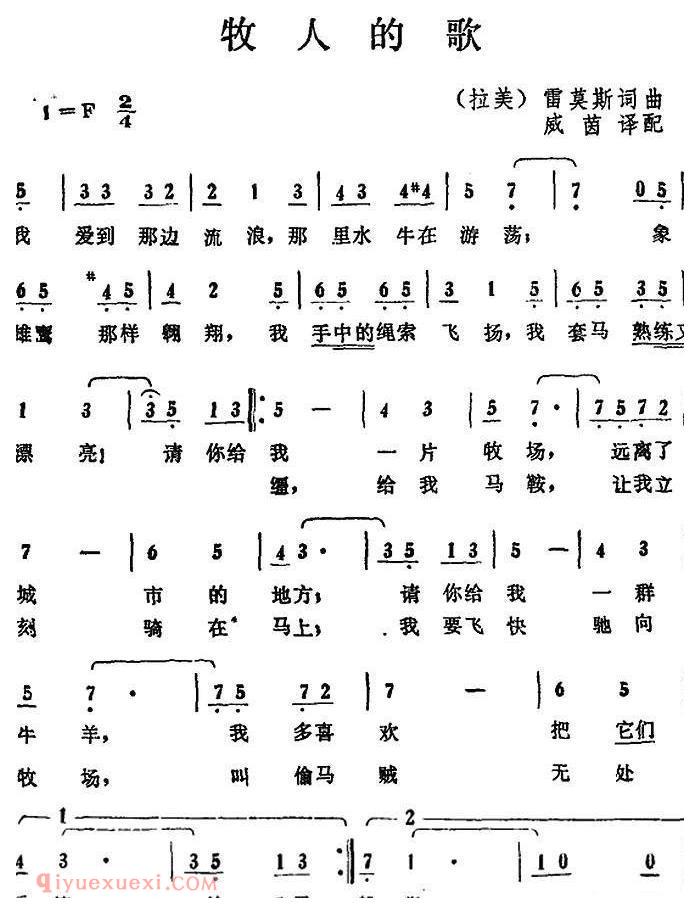 牧人的歌
1=F 2/4
(拉美) 雷莫斯词曲
威茵译配
5 | 3 3 3 2 | 2 1 3 | 4 3 4 #4 | 5 7 | 7 0 5 |
我 爱到 那边 流 浪,那 里水 牛在 游 荡; 象
6 5 #4 5 | 4 2 5 | 6 5 6 5 | 3 1 5 | 6 5 3 5 |
雎鹰 那样 翱 翔, 我 手中的绳索 飞 扬,我 套马 熟练又
1 3 | 3 5 1 3 |: 5 — | 4 3 | 5 7 · | 7 5 7 2 |
漂 亮! 请 你给 我 一 片 牧 场, 远离了
缰, 给 我 马 鞍, 让我立
7 — | 6 5 | 4 3 · | 3 5 1 3 | 5 — | 4 3
城 市 的 地方; 请 你给 我 一 群
刻 骑 在 马上; 我 要飞 快 驰 向
5 7 · | 7 5 7 2 | 7 — | 6 5
牛 羊, 我 多喜 欢 把 它们
牧 场, 叫 偷马 贼 无 处
1 2
4 3 · | 3 5 1 3 :| 7 1 · | 1 0 0
qiyuexuexi.com